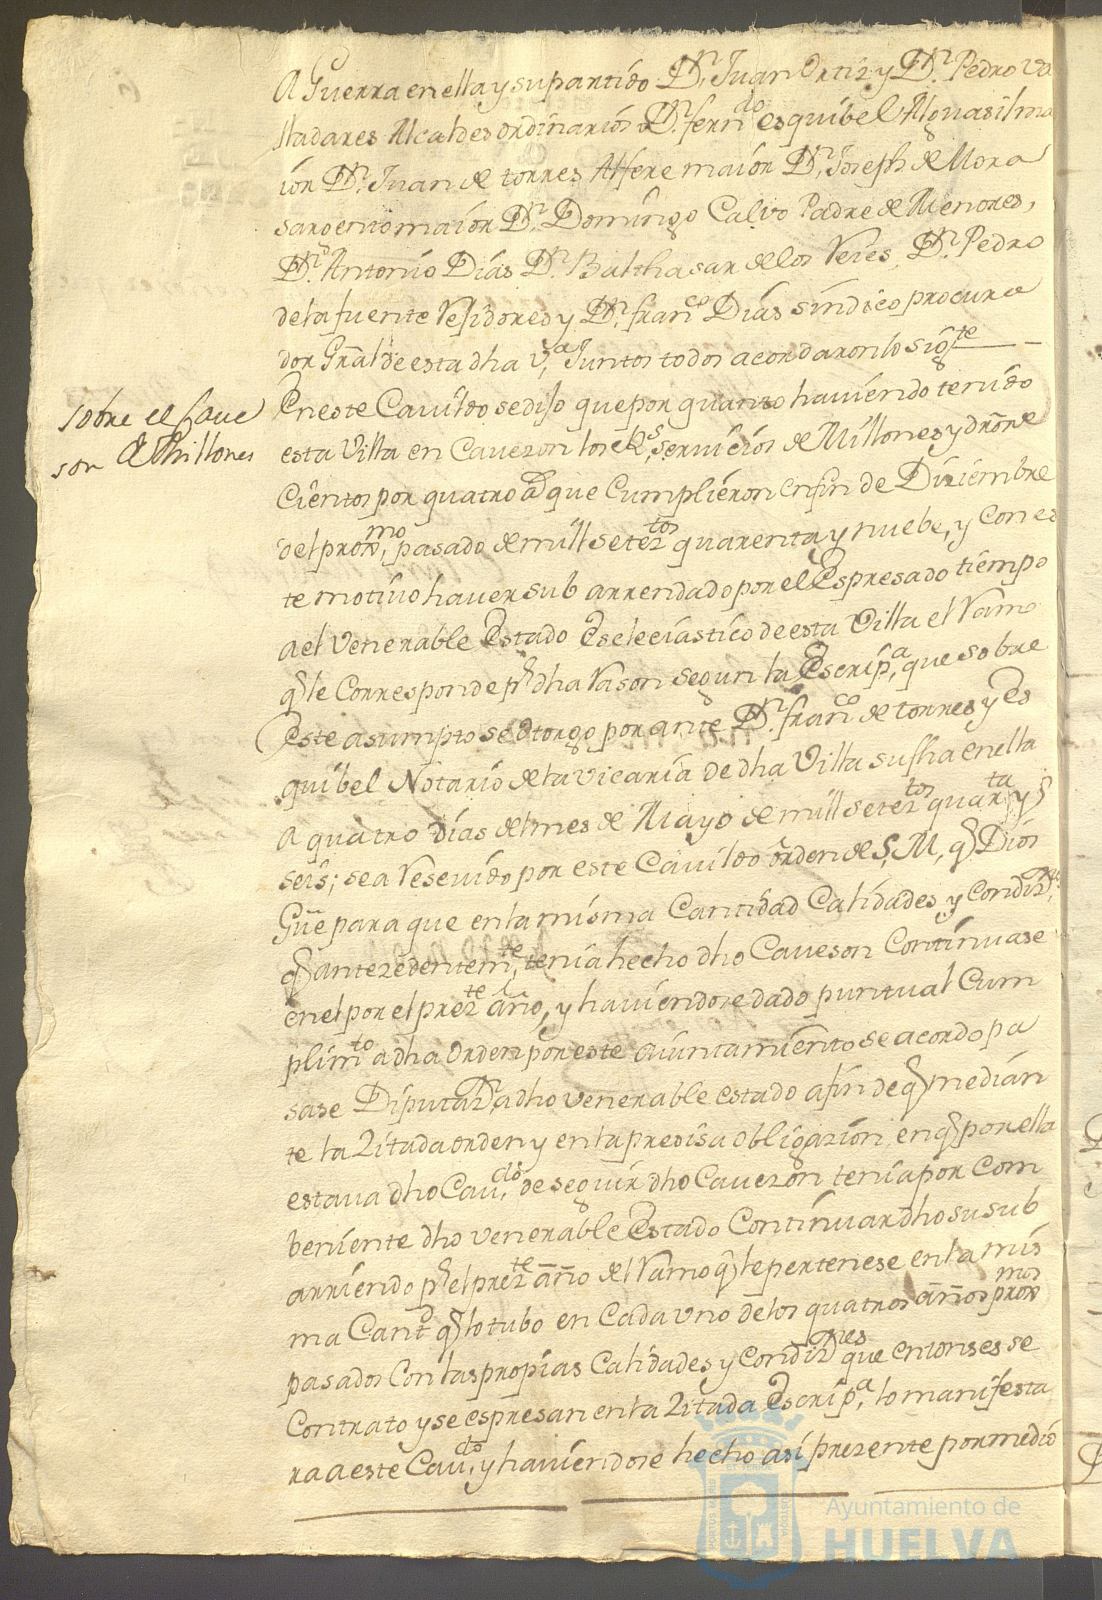 A Guerra en ella y su partido Dn. Juan Ortiz y Dn. Pedro Va
lladares Alcaldes ordinarios Dn. ferndo esquibel Alguasil ma
ior Dn. Juan de torres Alfere maior Dn. Joseph de Mora
sargento maior Dn. Domingo Calvo Padre de Menores,
Dn. Antonio Dias Dn. Balthasar de los Reies, Dn. Pedro
de la fuente Residores y Dn. franco Dias sindico procura
dor Gral de esta dha va. Juntos todos acordaron lo sigte
sobre el Cave
son de Millones
En este Cavildo se dijo que por quanto haviendo tenido
esta Villa en Cavezon los Rs. servicios de Millones y
Cientos por quatro as que Cumplieron en fin de Diziembre
del proxmo. pasado de mill seteztos quarenta y nuebe, y con es
te motivo haver sub arrendado por el Espresado tiempo
a el Venerable Estado Eseleciastico de esta Villa el Ramo
q le Corresponde pr dha Rason segun la Escripa. que sobre
Este asumpto se otorgo por ante Dn. franco de torres y Es
quibel Notario de la vicaria de dha Villa su fha en ella
a quatro dias del mes de Mayo de mill seteztos quarta y
seis; se a Resevido por este Cavildo orden de S. M. q Dios
Gue para que en la misma Cantidad Calidades y Condizs.
q antezedentemte. tenia hecho dho Caveson Continuase
en el por el prezte año, y haviendose dado puntual Cum
plimto a dha Orden por este aiuntamiento se acordo pa
sase Diputazn. a dho venerable estado a fin de q median
te la Zitada orden y en la presisa obligazion en q por ella
estava dho Cavdo. de seguir dho Cavezon tenia por Com
beniente dho venerable Estado Continuar dho su sub
arriendo pr el prezte año del Ramo q le pertenese en la mis
ma Cantd q lo tubo en Cada uno de los quatros años proxmos
pasados Con las propias Calidades y Condiznes que entonses se
Contrato y se espresan en la Zitada Escripa. lo manifesta
ra a este Cavdo. y haviendose hecho asi prezente por medio
Ayuntamiento de
HUELVA